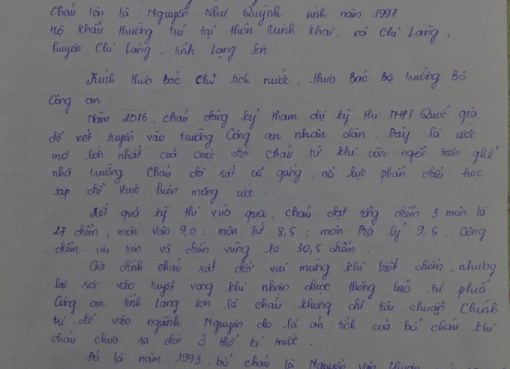 Cháu tên là: Nguyễn Như Quỳnh sinh năm 1997
Hộ khẩu thường trú tại thôn Minh Khai, xã Chi Lăng,
huyện Chi Lăng, tỉnh Lạng Sơn
Kính thưa bác Chủ tịch nước, thưa bác Bộ trưởng Bộ
Công an.
Năm 2016, cháu đăng ký tham dự kỳ thi THPT Quốc gia
để xét tuyển vào trường Công an nhân dân. Đây là ước
mơ lớn nhất của cuộc đời cháu từ khi còn ngồi trên ghế
nhà trường. Cháu đã rất cố gắng, nỗ lực phấn đấu học
tập để thực hiện mong ước.
Kết quả kỳ thi vừa qua, cháu đạt tổng điểm 3 môn là
27 điểm, môn Văn 9,0; môn Sử 8,5; môn Địa lý 9,5. Cộng
điểm ưu tiên và điểm vùng là 30,5 điểm.
Gia đình cháu rất đỗi vui mừng khi biết điểm, nhưng
lại rơi vào tuyệt vọng khi nhận được thông báo từ phía
Công an tỉnh Lạng Sơn là cháu không đủ tiêu chuẩn Chính
trị để vào ngành. Nguyên do là án tích của bố cháu khi
cháu chưa ra đời ở thế kỉ trước.
Đó là năm 1993, bố cháu là Nguyễn Văn